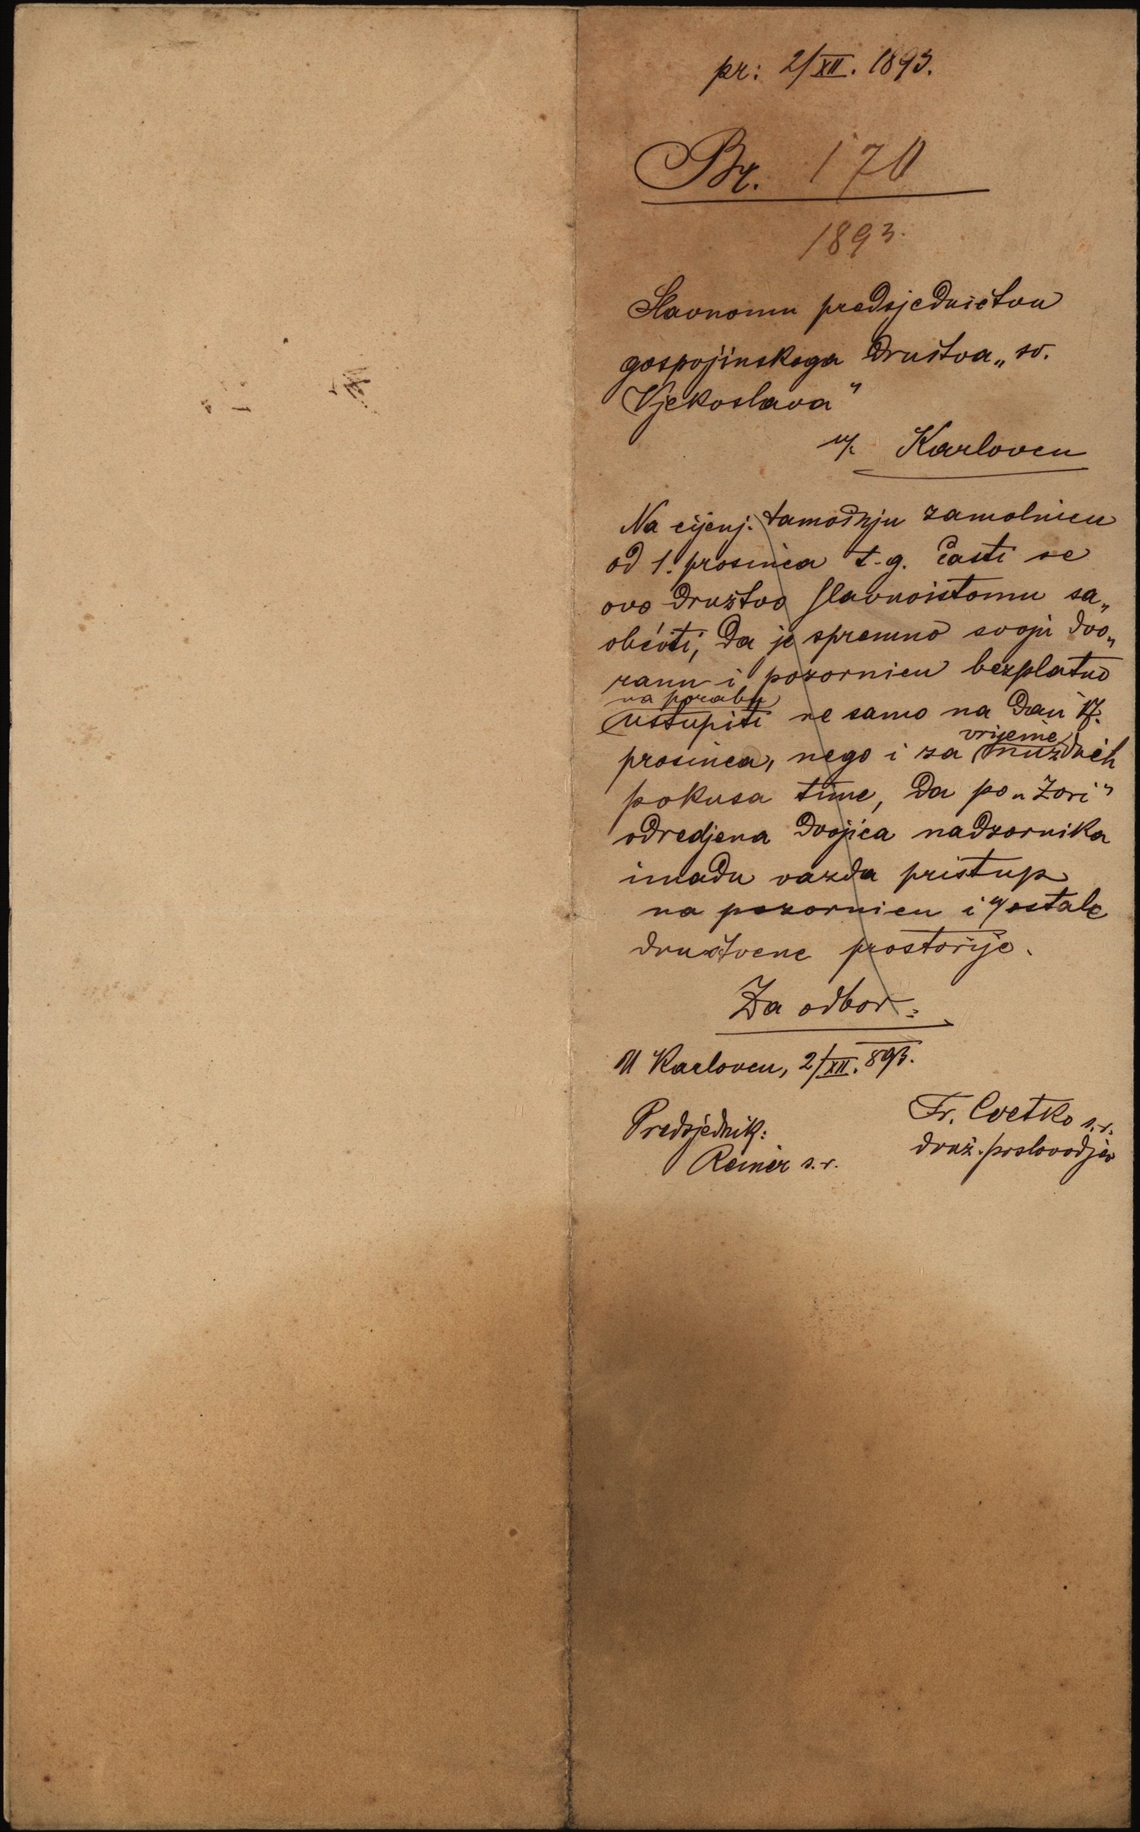 pr: 2/XII. 1893.
Br. 170
1893.
Slavnomu predsjedničtvu
gospojinskoga družtva „sv.
Vjekoslava“
u Karlovcu
Na cijenj. tamošnju zamolnicu
od 1. prosinca t. g. časti se
ovo družtvo slavnoistomu sa„
obćiti, da je spremno svoju dvo„
ranu i pozornicu bezplatno
na porabu
ustupiti ne samo na dan 17.
vrijeme
prosinca, nego i za nuždnih
pokusa time, da po „Zori“
odredjena dvojica nadzornika
imadu vazda pristup
na pozornicu i u ostale
družtvene prostorije.
Za odbor:
U Karlovcu, 2/XII. 893.
Predsjednik:
Reiner s. r.
Fr. Cvetko s. r.
druž. poslovodja